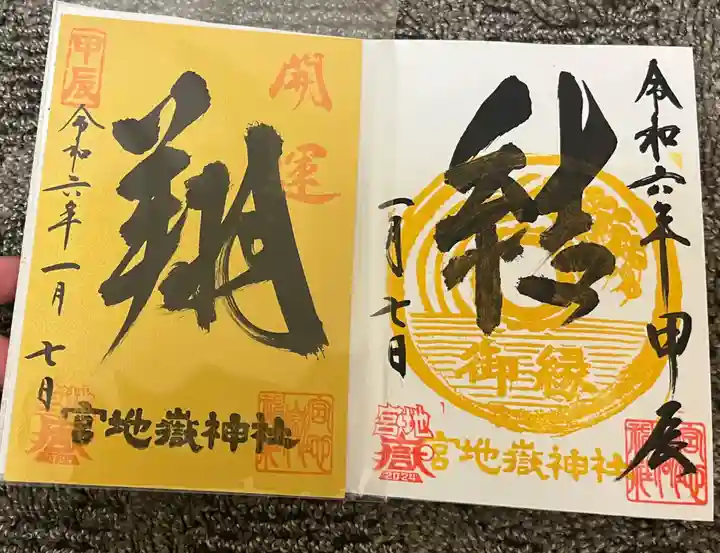 甲辰
開運
翔
令和六年一月七日
宮地嶽神社
令和六年甲辰
一月七日
御縁
宮地嶽
2024
宮地嶽神社